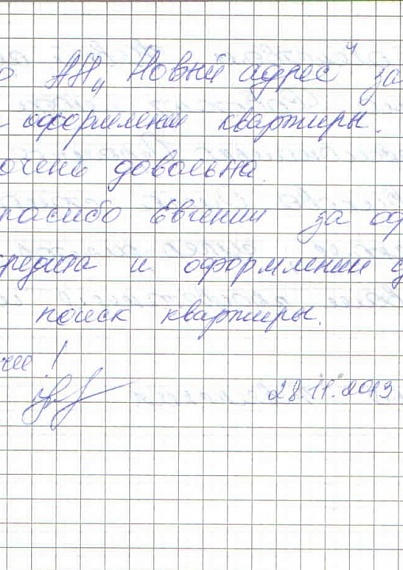 о АН „Новый адрес" за
оформлении квартиры.
очень довольна
пасибо Евгении за оф
редита и оформлении с
поиск квартиры.
чее!
28.11.2013